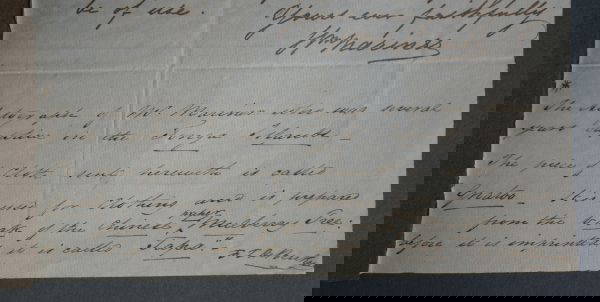 be of use.
yours very faithfully
Wm Mariner
The Autograph of Mr Mariner who was several
years Captive in the Tonga Islands
The piece of Cloth sent herewith is called
Gnatoo it is used for Clothing and is prepared
from the bark of the Chinese paper Mulberry Tree.
before it is imprinted it is called Tapa.